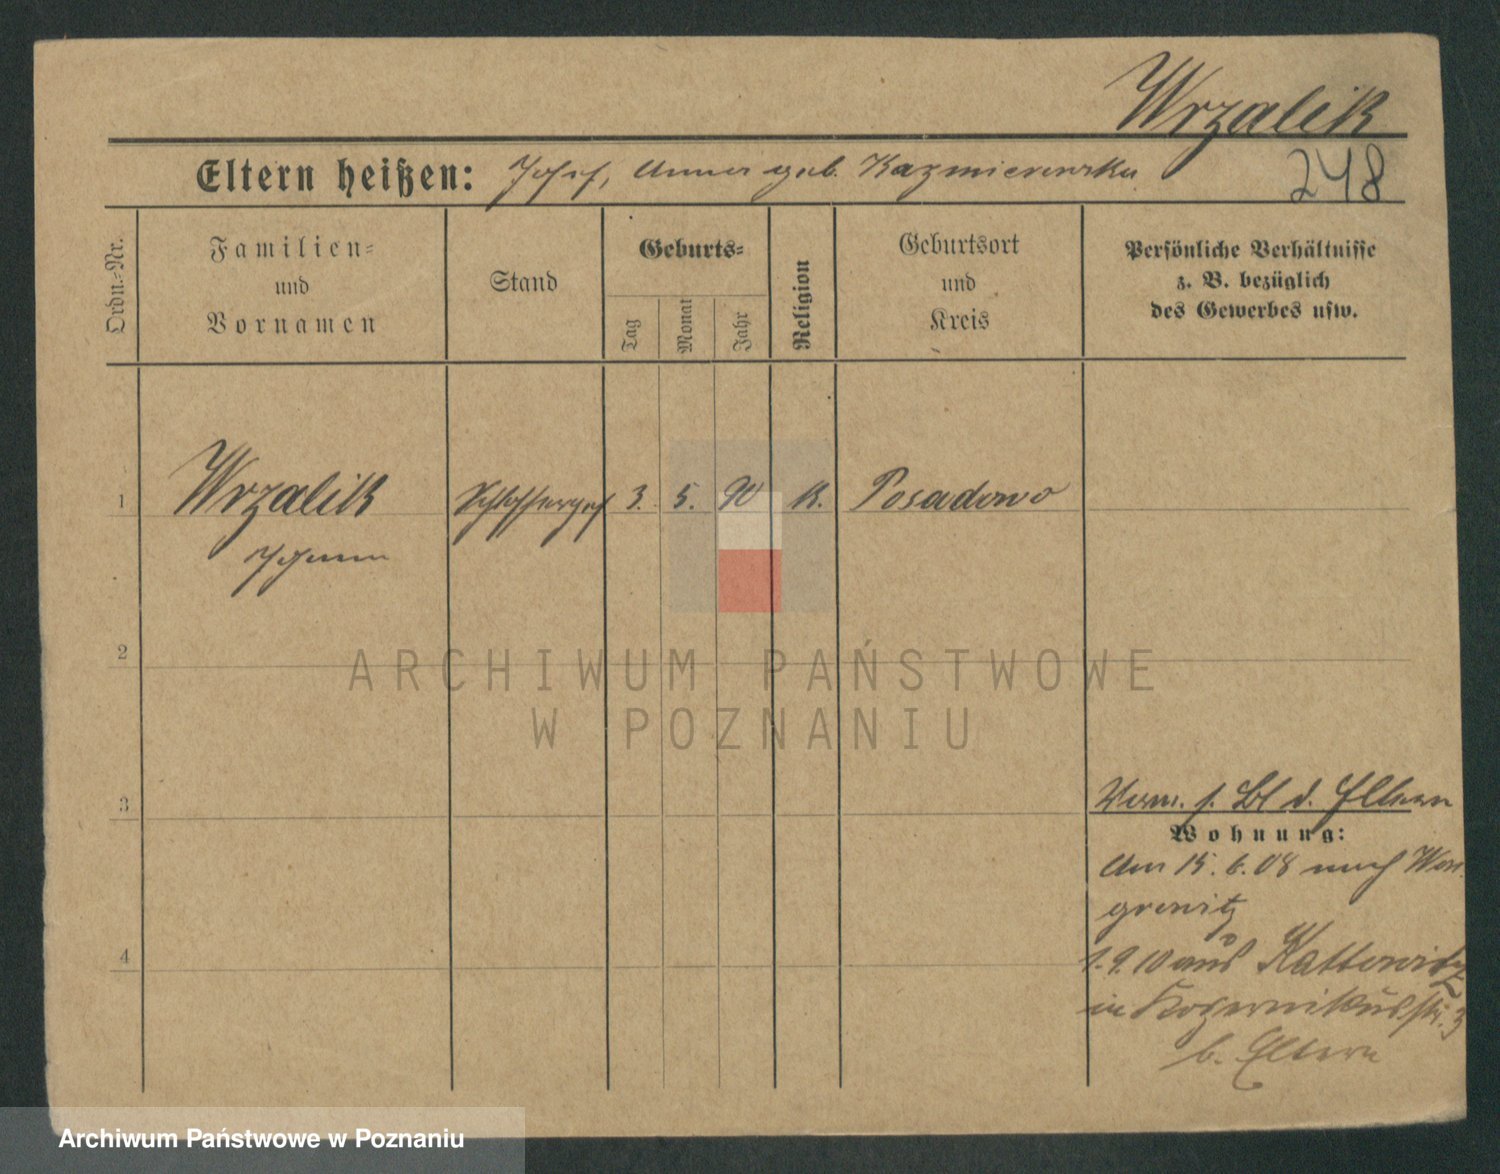 Wrzalik
Eltern heißen: Josef, Anna geb. Kazmierowska
248
Ordn.-Nr.
Familien-
und
Vornamen
Stand
Geburts-
Tag
Monat
Jahr
Religion
Geburtsort
und
Kreis
Persönliche Verhältnisse
z. B. bezüglich
des Gewerbes usw.
1 Wrzalik Schlosserges 3. 5. 90 K. Posadowo
Johann
2
ARCHIWUM PAŃSTWOWE
W POZNANIU
3
Verm. s. Bl d. Eltern
Wohnung:
Am 15.6.08 nach Won
growitz
4
1.9.10 aus Kattowitz
in Kopernikusstr. 3
b. Eltern
Archiwum Państwowe w Poznaniu